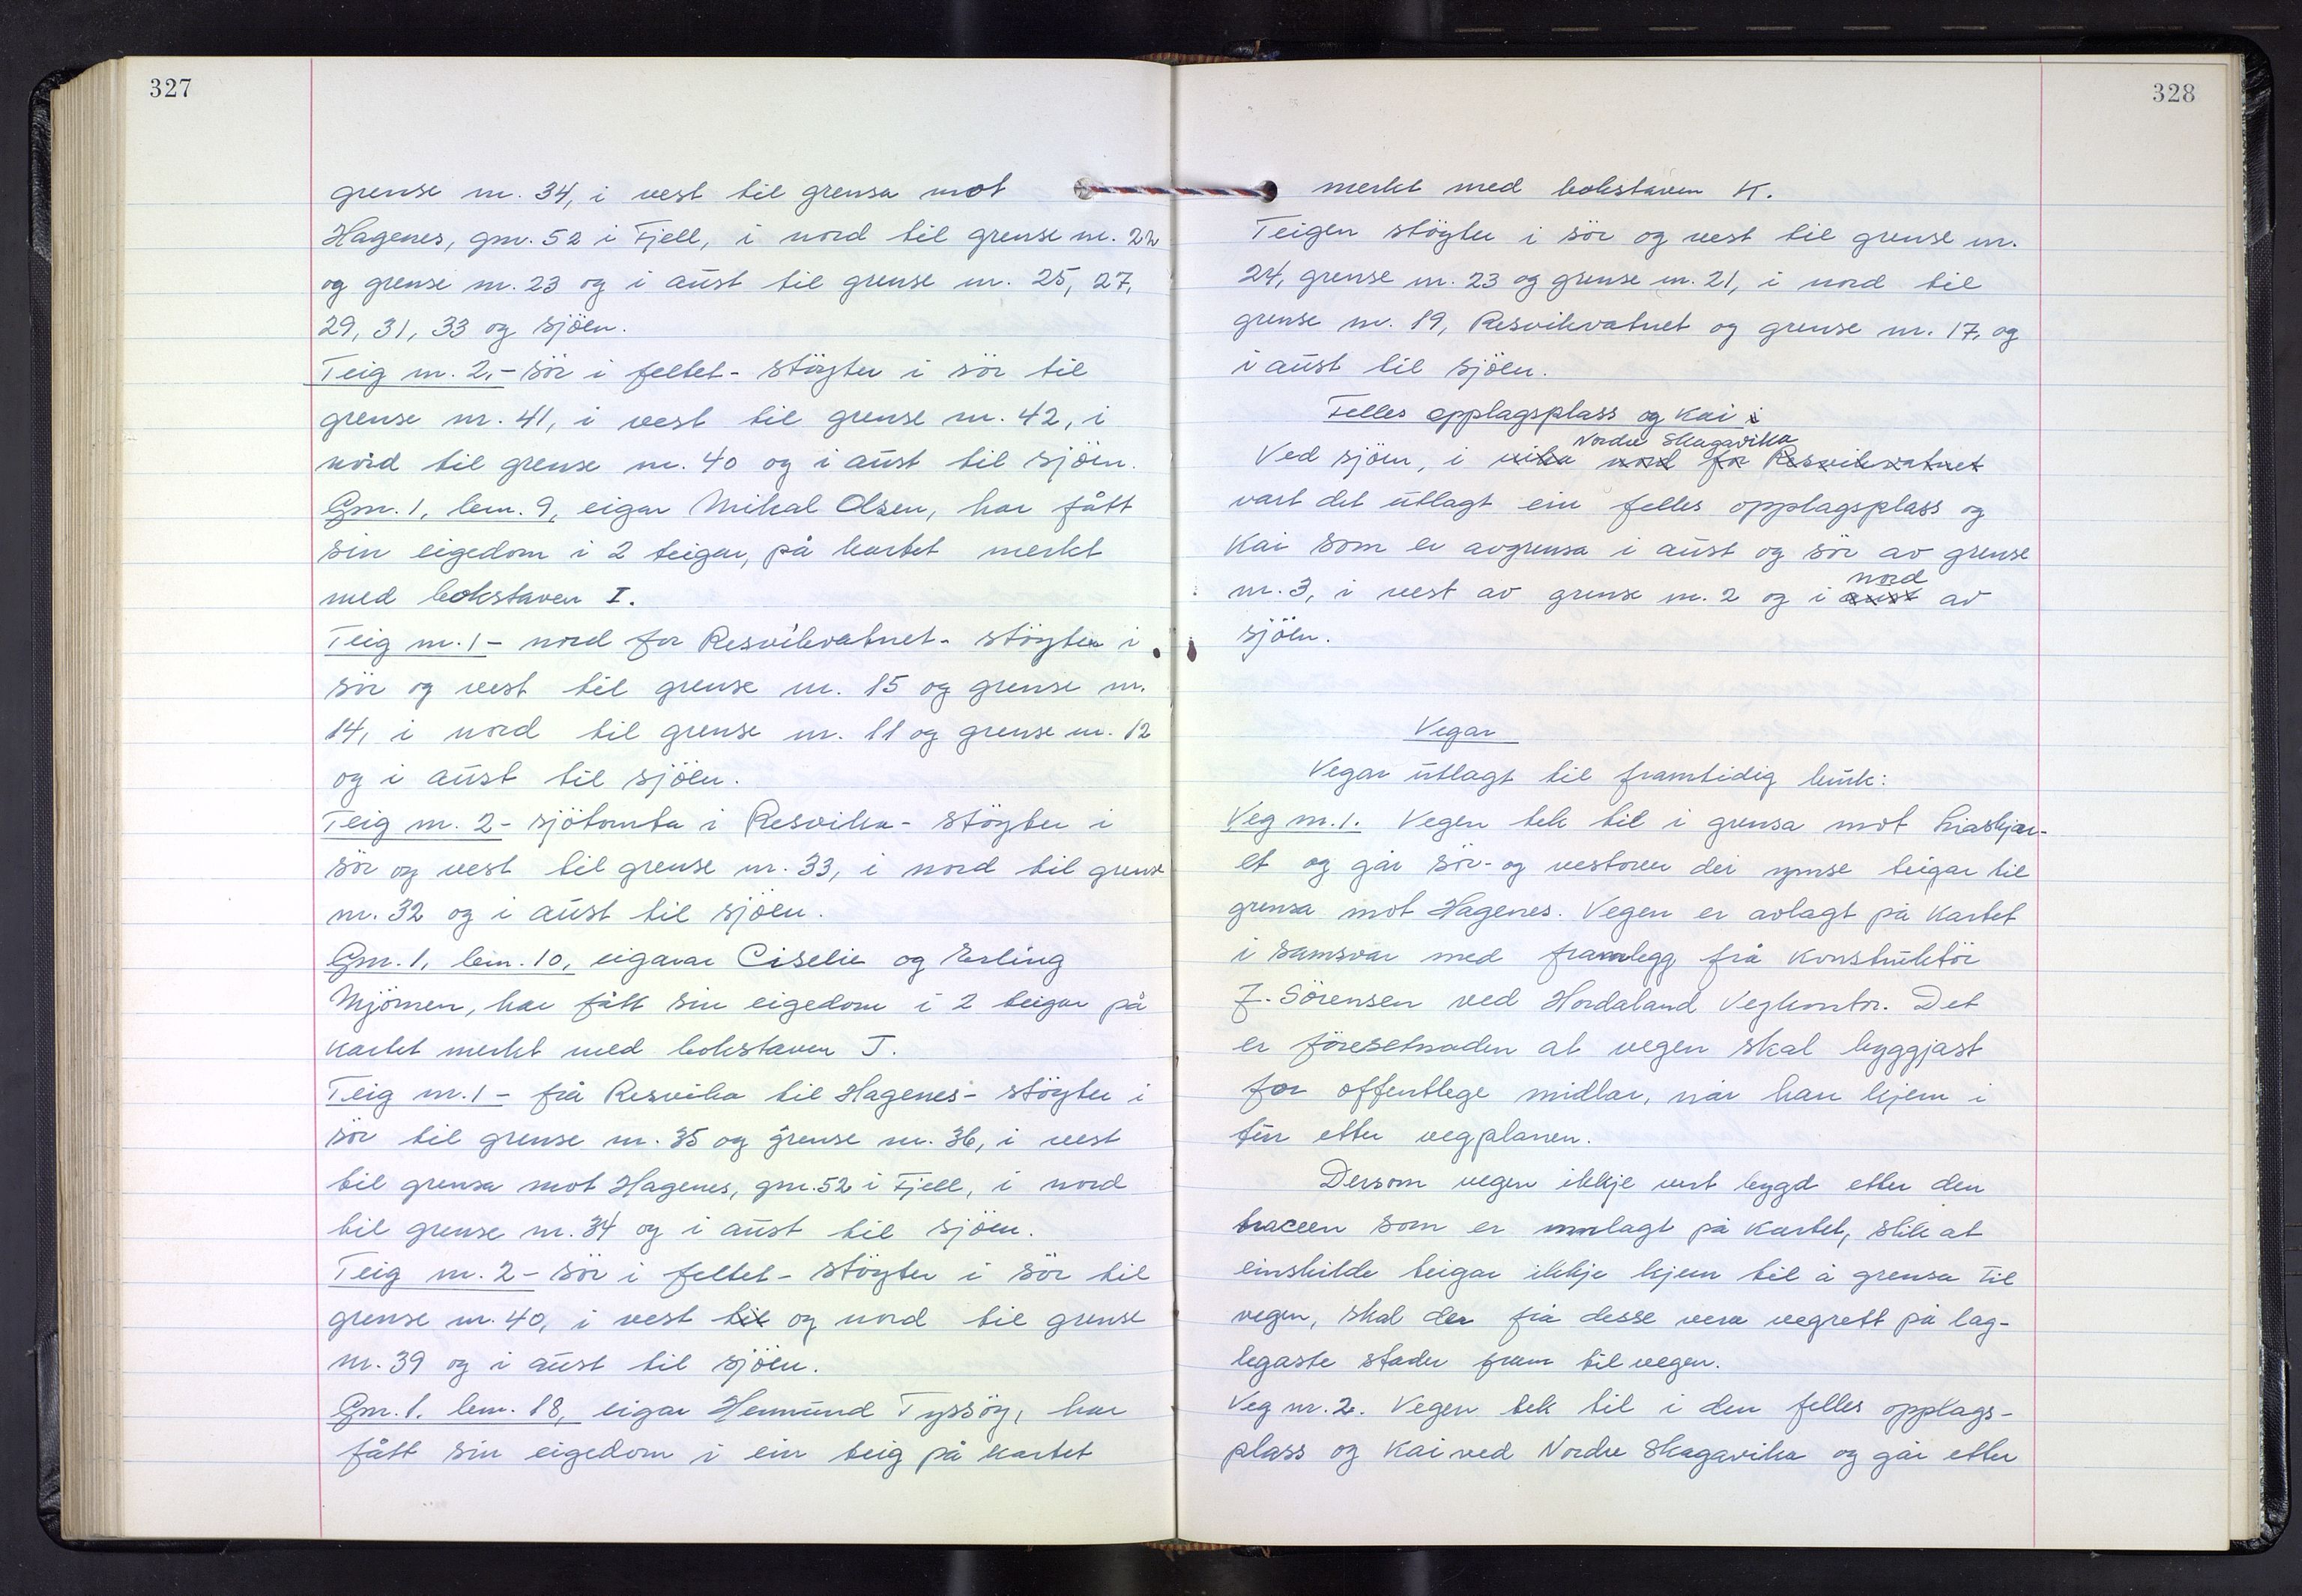 327
grense nr. 34, i vest til grensa mot
Hagenes, gnr. 52 i Fjell, i nord til grense nr. 22
og grense nr. 23 og i aust til grense nr. 25, 27,
29, 31, 33 og sjöen.
Teig nr. 2,- sör i feltet - stöyter i sör til
grense nr. 41, i vest til grense nr. 42, i
nord til grense nr. 40 og i aust til sjöen.
Gnr. 1, bnr. 9, eigar Mikal Olsen, har fått
sin eigedom i 2 teigar, på kartet merkt
med bokstaven I.
Teig nr. 1 - nord for Resvikvatnet - stöyter i
sör og vest til grense nr. 15 og grense nr.
14, i nord til grense nr. 11 og grense nr. 12
og i aust til sjöen.
Teig nr. 2 - sjötomta i Resvika - stöyter i
sör og vest til grense nr. 33, i nord til grense
nr. 32 og i aust til sjöen.
Gnr. 1, bnr. 10, eigarar Ciselie og Erling
Mjömen, har fått sin eigedom i 2 teigar på
kartet merkt med bokstaven J.
Teig nr. 1 - frå Resvika til Hagenes - stöyter i
sör til grense nr. 35 og grense nr. 36, i vest
til grensa mot Hagenes, gnr. 52 i Fjell, i nord
til grense nr. 34 og i aust til sjöen.
Teig nr. 2 - sör i feltet - stöyter i sör til
grense nr. 40, i vest til og nord til grense
nr. 39 og i aust til sjöen.
Gnr. 1. bnr. 18, eigar Hermund Tyssöy, har
fått sin eigedom i ein teig på kartet
328
merkt med bokstaven K.
Teigen stöyter i sör og vest til grense nr.
24, grense nr. 23 og grense nr. 21, i nord til
grense nr. 19, Resvikvatnet og grense nr. 17, og
i aust til sjöen.
Felles opplagsplass og kai i
Nordre Skagavika
Ved sjöen, i vika nord for Resvikvatnet
vart det utlagt ein felles opplagsplass og
kai som er avgrensa i aust og sör av grense
nord
nr. 3, i vest av grense nr. 2 og i aust av
sjöen.
Vegar
Vegar utlagt til framtidig bruk:
Veg nr. 1. Vegen tek til i grensa mot Liaskjær-
et og går sör- og vestover dei ymse teigar til
grensa mot Hagenes. Vegen er avlagt på kartet
i samsvar med framlegg frå konstruktör
Z. Sörensen ved Hordaland Vegkontor. Det
er föresetnaden at vegen skal byggjast
for offentlege midlar, når han kjem i
tur etter vegplanen.
Dersom vegen ikkje vert bygd etter den
traceen som er innlagt på kartet, slik at
einskilde teigar ikkje kjem til å grensa til
vegen, skal der frå desse vera vegrett på lag-
legaste stader fram til vegen.
Veg nr. 2. Vegen tek til i den felles opplags-
plass og kai ved Nordre Skagavika og går etter